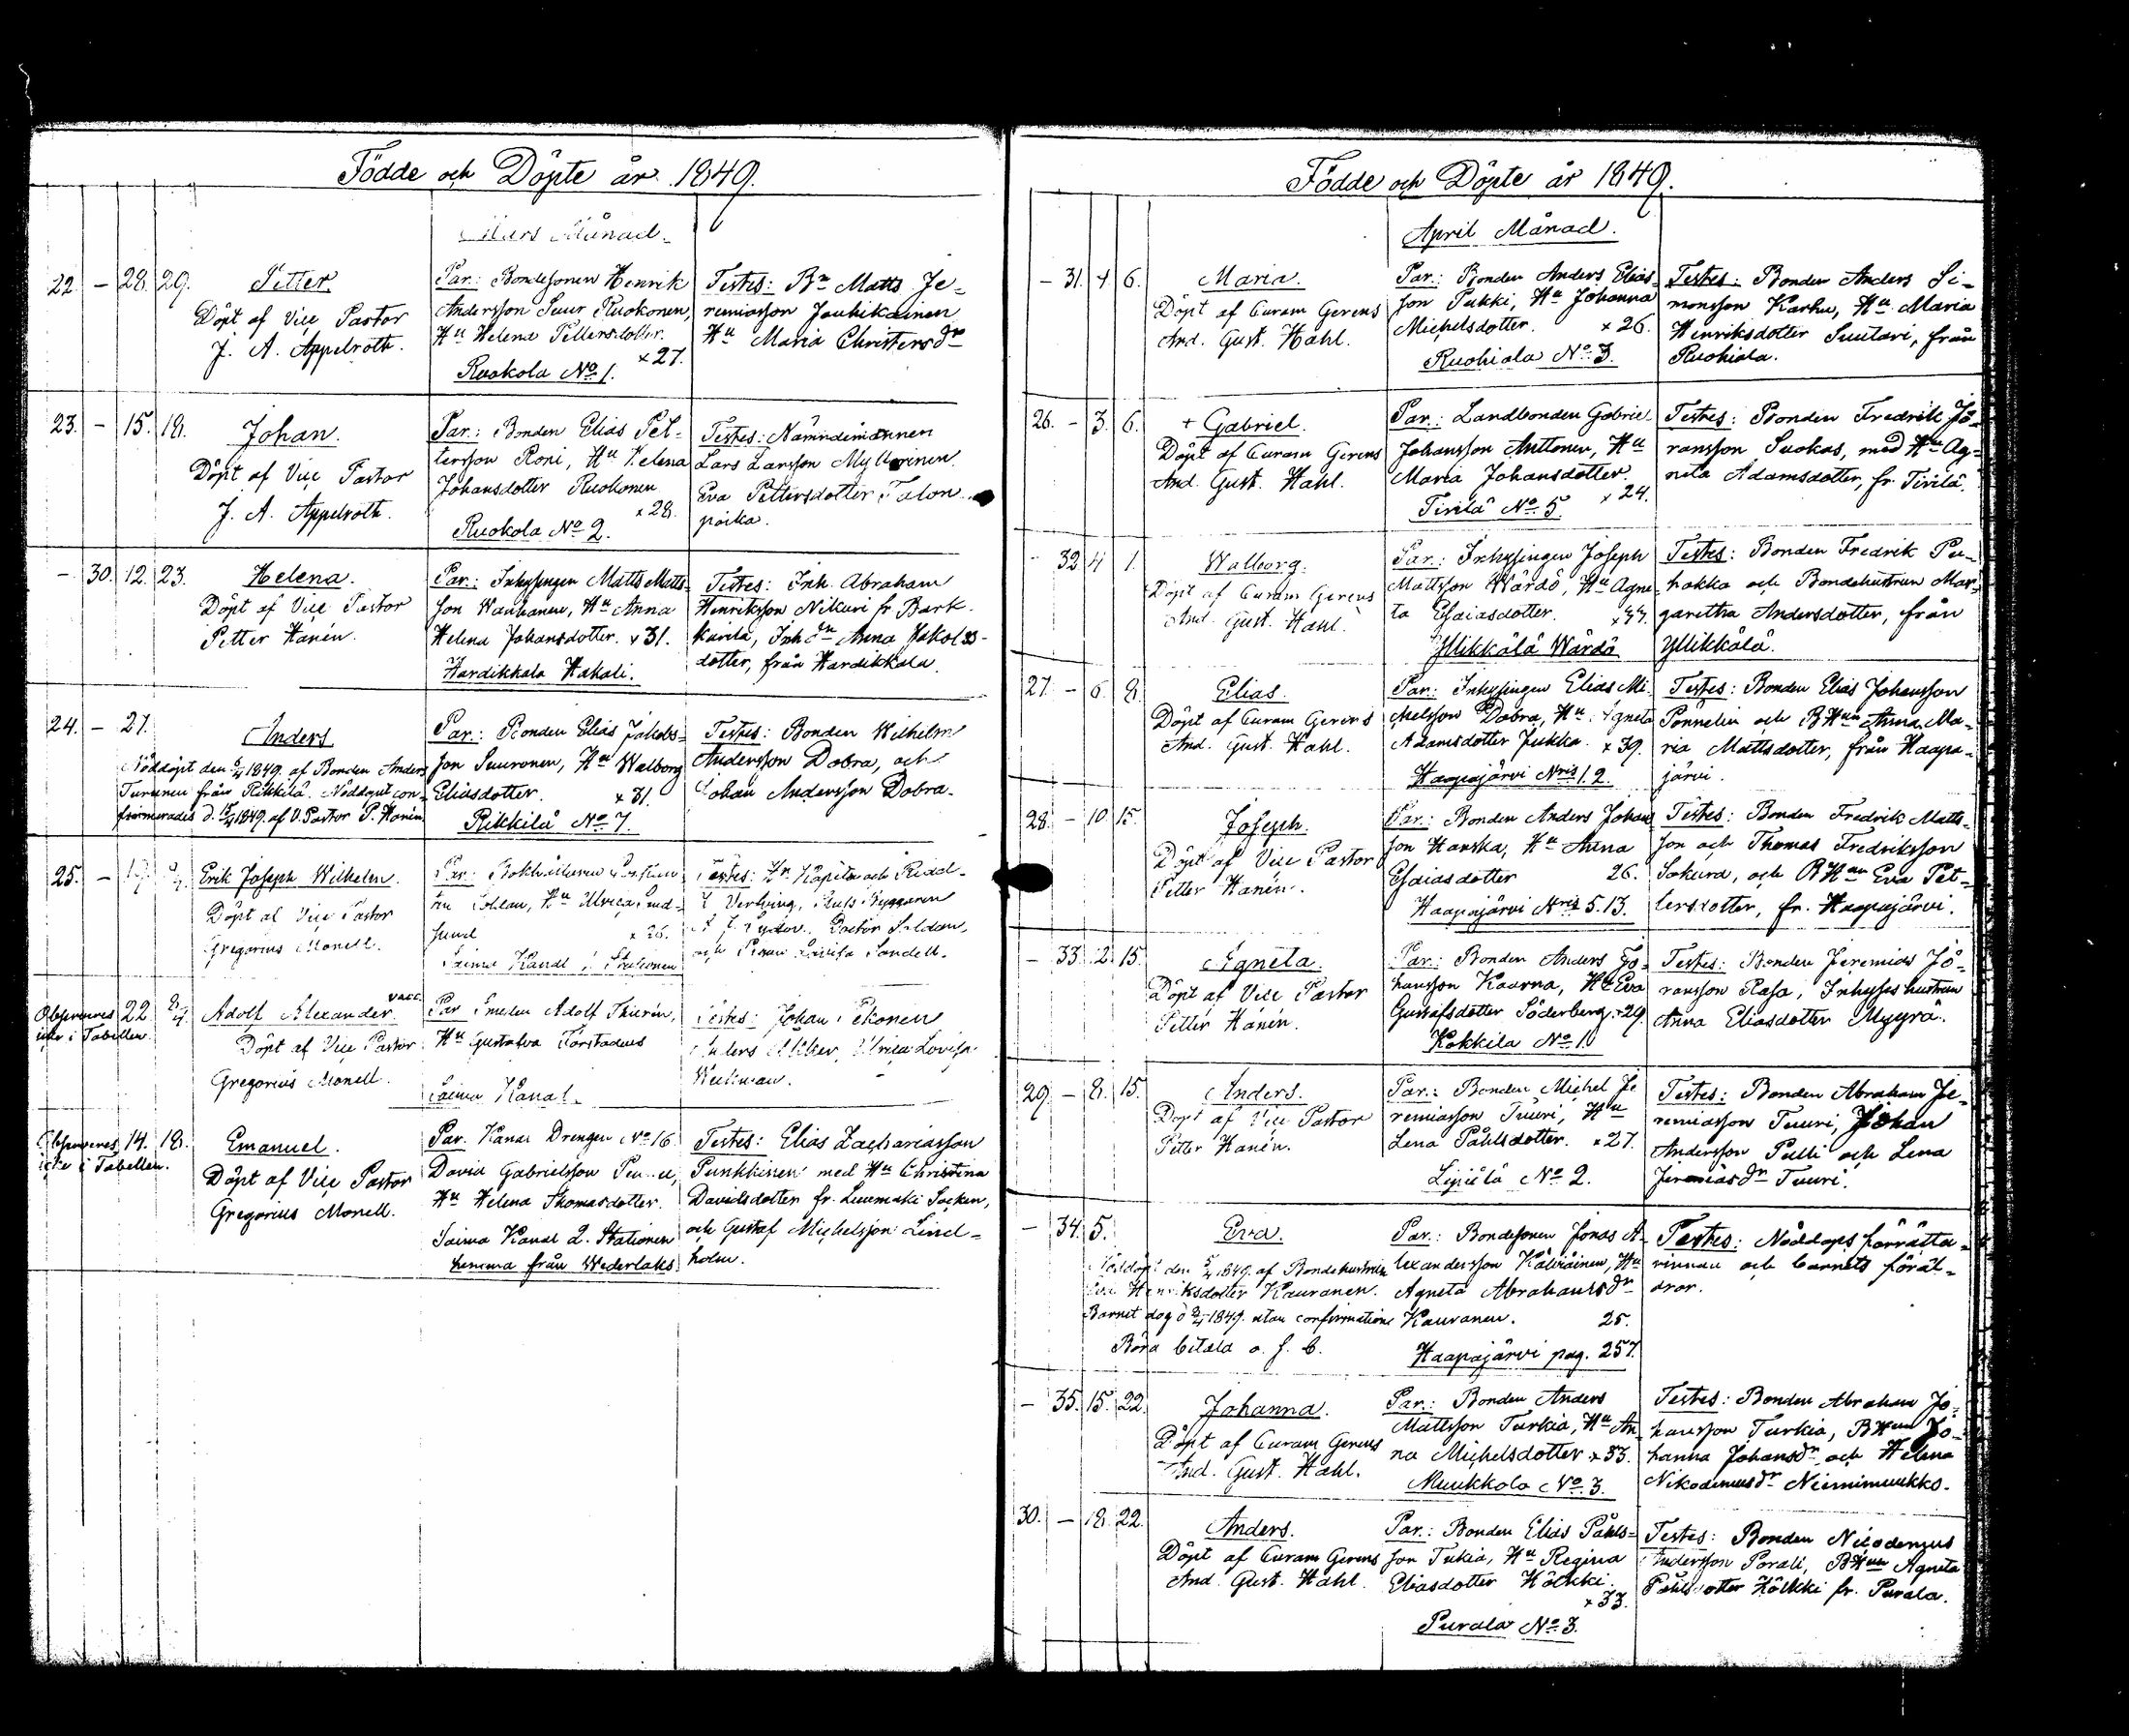 Födde och Döpte år 1849.
Mars Månad.
22. – 28. 29. Petter.
Döpt af Vice Pastor
J. A. Appelroth.
Par.: Bondesonen Henrik
Andersson Suur Ruokonen,
Hu Helena Pettersdotter.
×27.
Ruokola No 1.
Testes: Bn Matts Je-
remiasson Jauhikainen
Hu Maria Christersdr
23. – 15. 18. Johan.
Döpt af Vice Pastor
J. A. Appelroth.
Par.: Bonden Elias Pet-
tersson Roni, Hu Helena
Johansdotter Ruokonen
×28.
Ruokola No 2.
Testes: Nämndemannen
Lars Larsson Myllärinen
Eva Pettersdotter Talon
poika.
– 30. 12. 23. Helena.
Döpt af Vice Pastor
Petter Hanén.
Par.: Inhysingen Matts Matts-
son Wanhanen, Hu Anna
Helena Johansdotter. ×31.
Hardikkala Hakali.
Testes: Inh. Abraham
Henriksson Nikuri fr. Bark-
karila, Inh dn Anna Jakobs-
dotter, från Hardikkala.
24. – 27. Anders.
Nöddöpt den 5/4 1849. af Bonden Anders
Turunen från Rikkilä. Nöddopet con-
firmerades d. 15/4 1849. af V. Pastor P. Hanén.
Par.: Bonden Elias Jakobs-
son Suuronen, Hu Walborg
Eliasdotter. ×31.
Rikkilä No 7.
Testes: Bonden Wilhelm
Andersson Dobra, och
Johan Andersson Dobra.
25. – Erik Joseph Wilhelm.
Döpt af Vice Pastor
Gregorius Monell.
Par: Bokhållaren
Hu Ulrica
×26.
Saima Kanal
Testes: Hr Kapiten och Ridd-
och Lovisa Sandell.
Observeras 22. 8/4 Adolf Alexander. vacc.
icke i Tabellen.
Döpt af Vice Pastor
Gregorius Monell.
Par Smeden Adolf Thierén,
Hu Gustafva Förstadius
Saima Kanal.
Testes: Johan Pekonen
Anders Ulrica Lovisa
Weckman.
Observeras 14. 18. Emanuel.
icke i Tabellen.
Döpt af Vice Pastor
Gregorius Monell.
Par. Kanal Drengen No 16
David Gabrielsson
Hu Helena Thomasdotter.
Saima Kanal 2. Stationen
hemma från Wederlaks
Testes: Elias Zachariasson
Punkkinen med Hu Christina
Davidsdotter fr. Luumäki Socken,
och Gustaf Michelsson Lind-
holm.
Födde och Döpte år 1849.
April Månad.
– 31. 4. 6. Maria.
Döpt af Curam Gerens
And. Gust. Hahl.
Par.: Bonden Anders Elias-
son Pukki, Hu Johanna
Michelsdotter. ×26.
Ruohiala No 3.
Testes: Bonden Anders Si-
monsson Karhu, Hu Maria
Henriksdotter Suutari, från
Ruohiala.
26. – 3. 6. + Gabriel.
Döpt af Curam Gerens
And. Gust. Hahl.
Par.: Landbonden Gabriel
Johansson Anttonen, Hu
Maria Johansdotter.
×24.
Tirilä No 5.
Testes: Bonden Fredrik Jö-
ransson Suokas, med Hu Ag-
neta Adamsdotter, fr. Tirilä.
– 32. 4 1. Walborg.
Döpt af Curam Gerens
And. Gust. Hahl.
Par.: Inhysingen Joseph
Mattsson Wårdö, Hu Agne-
ta Esaiasdotter.
Yllikkälä Wårdö
Testes: Bonden Fredrik Pu-
hakka och Bondehustrun Mar-
garetha Andersdotter, från
Yllikkälä.
27. – 6. 8. Elias.
Döpt af Curam Gerens
And. Gust. Hahl.
Par.: Inhysingen Elias Mi-
chelsson Dobra, Hu Agneta
Adamsdotter Jukka. ×39.
Haapajärvi Nris 1. 2.
Testes: Bonden Elias Johansson
Ponnelin och BHun Anna Ma-
ria Mattsdotter, från Haapa-
järvi.
28. – 10. 15. Joseph.
Döpt af Vice Pastor
Petter Hanén.
Par.: Bonden Anders Johans-
son Hanska, Hu Anna
Esaiasdotter 26.
Haapajärvi Nris 5. 13.
Testes: Bonden Fredrik Matts-
son och Thomas Fredriksson
Sakura, och BHun Eva Pet-
tersdotter, fr. Haapajärvi.
– 33. 2. 15. Agneta.
Döpt af Vice Pastor
Petter Hanén.
Par.: Bonden Anders Jo-
hansson Kaarna, Hu Eva
Gustafsdotter Söderberg. ×29.
Kokkila No 1.
Testes: Bonden Jeremias Jö-
ransson Rasa, Inhyses hustrun
Anna Eliasdotter Myyrä.
29. – 8. 15. Anders.
Döpt af Vice Pastor
Petter Hanén.
Par.: Bonden Michel Je
remiasson Tuuri, Hu
Lena Påhlsdotter. ×27.
No 2.
Testes: Bonden Abraham Je-
remiasson Tuuri, Johan
Andersson Pulli och Lena
Jeremiasdr Tuuri.
– 34. 5. Eva.
Nöddöpt den 5/4 1849. af Bondehustrun
Eva Henriksdotter Kauranen.
Barnet dog d 1849. utan confirmation
Böra betala o. s. b.
Par.: Bondesonen Jonas A-
lexandersson Kälviäinen, Hu
Agneta Abrahamsdr
Kauranen. 25.
Haapajärvi pag. 257.
Testes: Nöddops förrätta-
rinnan och barnets föräl-
drar.
– 35. 15. 22. Johanna.
Döpt af Curam Gerens
And. Gust. Hahl.
Par.: Bonden Anders
Mattsson Turkia, Hu An-
na Michelsdotter ×33.
Muukkola No 3.
Testes: Bonden Abraham Jo-
hansson Turkia, BHun Jo-
hanna Johansdr och Helena
Nikodemusdr Niemimuukko.
30. – 18. 22. Anders.
Döpt af Curam Gerens
And. Gust. Hahl.
Par.: Bonden Elias Påhls-
son Tukia, Hu Regina
Eliasdotter Hölkki.
×33.
Purala No 3.
Testes: Bonden Nicodemus
Andersson Porali, BHun Agneta
Påhlsdotter Hölkki fr. Purala.